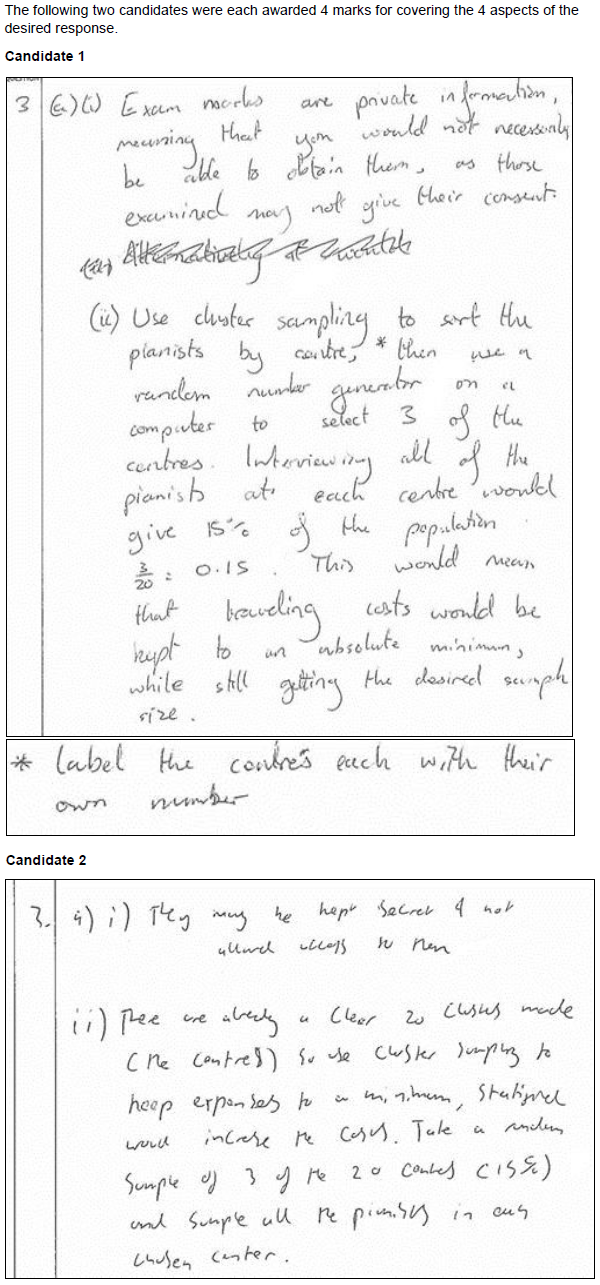 The following two candidates were each awarded 4 marks for covering the 4 aspects of the
desired response.
Candidate 1
3 (a)(i) Exam marks are private information,
meaning that you would not necessarily
be able to obtain them, as those
examined may not give their consent.
(ii) Alternatively
(ii) Use cluster sampling to sort the
pianists by centre, * then use a
random number generator on a
computer to select 3 of the
centres. Interviewing all of the
pianists at each centre would
give 15% of the population
3/20 = 0.15 . This would mean
that traveling costs would be
kept to an absolute minimum,
while still getting the desired sample
size.
* label the centres each with their
own number
Candidate 2
3. a) i) They may be kept secret & not
allowed access to them
ii) There are already a clear 20 clusters made
(the centres) so use cluster sampling to
keep expenses to a minimum, stratified
would increase the costs. Take a random
sample of 3 of the 20 centres (15%)
and sample all the pianists in each
chosen center.